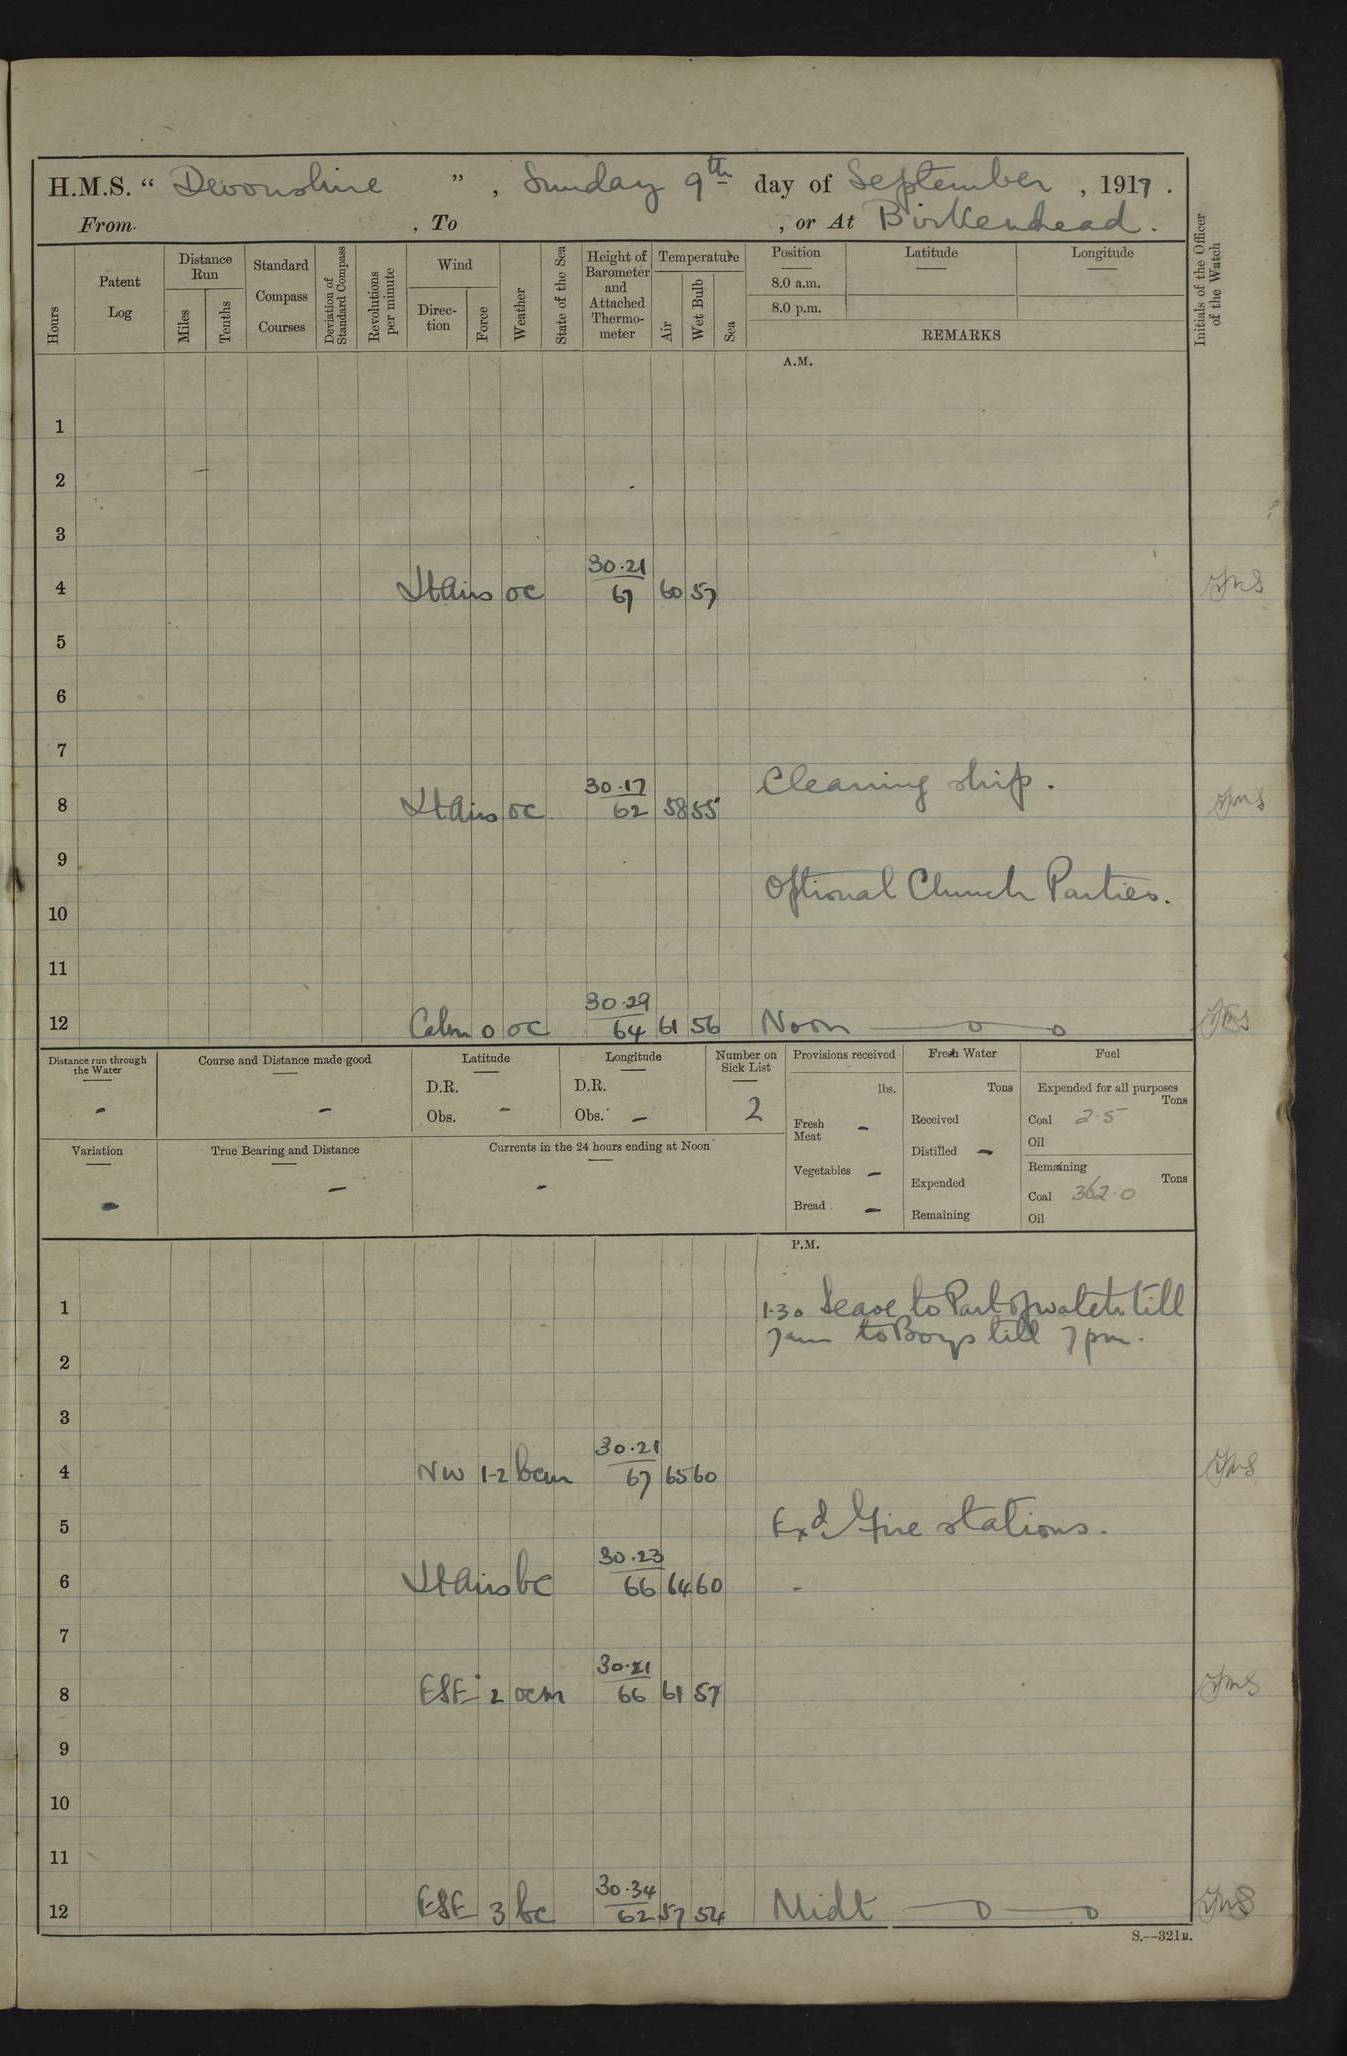 H.M.S. “ Devonshire ” , Sunday 9th day of September , 1917 .
From , To , or At Birkenhead .
Hours
Patent Log
Distance Run
Miles
Tenths
Standard Compass Courses
Deviation of Standard Compass
Revolutions per minute
Wind
Direction
Force
Weather
State of the Sea
Height of Barometer and Attached Thermometer
Temperature
Air
Wet Bulb
Sea
Position
8.0 a.m.
8.0 p.m.
Latitude
Longitude
REMARKS
Initials of the Officer of the Watch
A.M.
1
2
3
30.21
4 Lt Airs oc 67 60 57
5
6
7
30.17 Cleaning ship .
8 Lt Airs oc 62 58 55
9
Optional Church Parties .
10
11
30.29
12 Calm 0 oc 64 61 56 Noon
Distance run through the Water -
Course and Distance made good -
Latitude
D.R.
Obs. -
Longitude
D.R.
Obs. -
Number on Sick List
2
Provisions received
lbs.
Fresh Meat -
Vegetables -
Bread -
Fresh Water
Tons
Received
Distilled -
Expended
Remaining
Fuel
Expended for all purposes
Tons
Coal 2.5
Oil
Remaining
Tons
Coal 362.0
Oil
Variation -
True Bearing and Distance -
Currents in the 24 hours ending at Noon -
P.M.
1 1.30 Leave to Part of watch till
7am to Boys till 7pm.
2
3
30.21
4 NW 1-2 bcm 67 65 60
5 Exd Fire stations .
30.23
6 Lt Airs bc 66 64 60 -
7
30.21
8 ESE 2 ocm 66 61 57
9
10
11
30.34
12 ESE 3 bc 62 57 54 Midt
S.—321B.